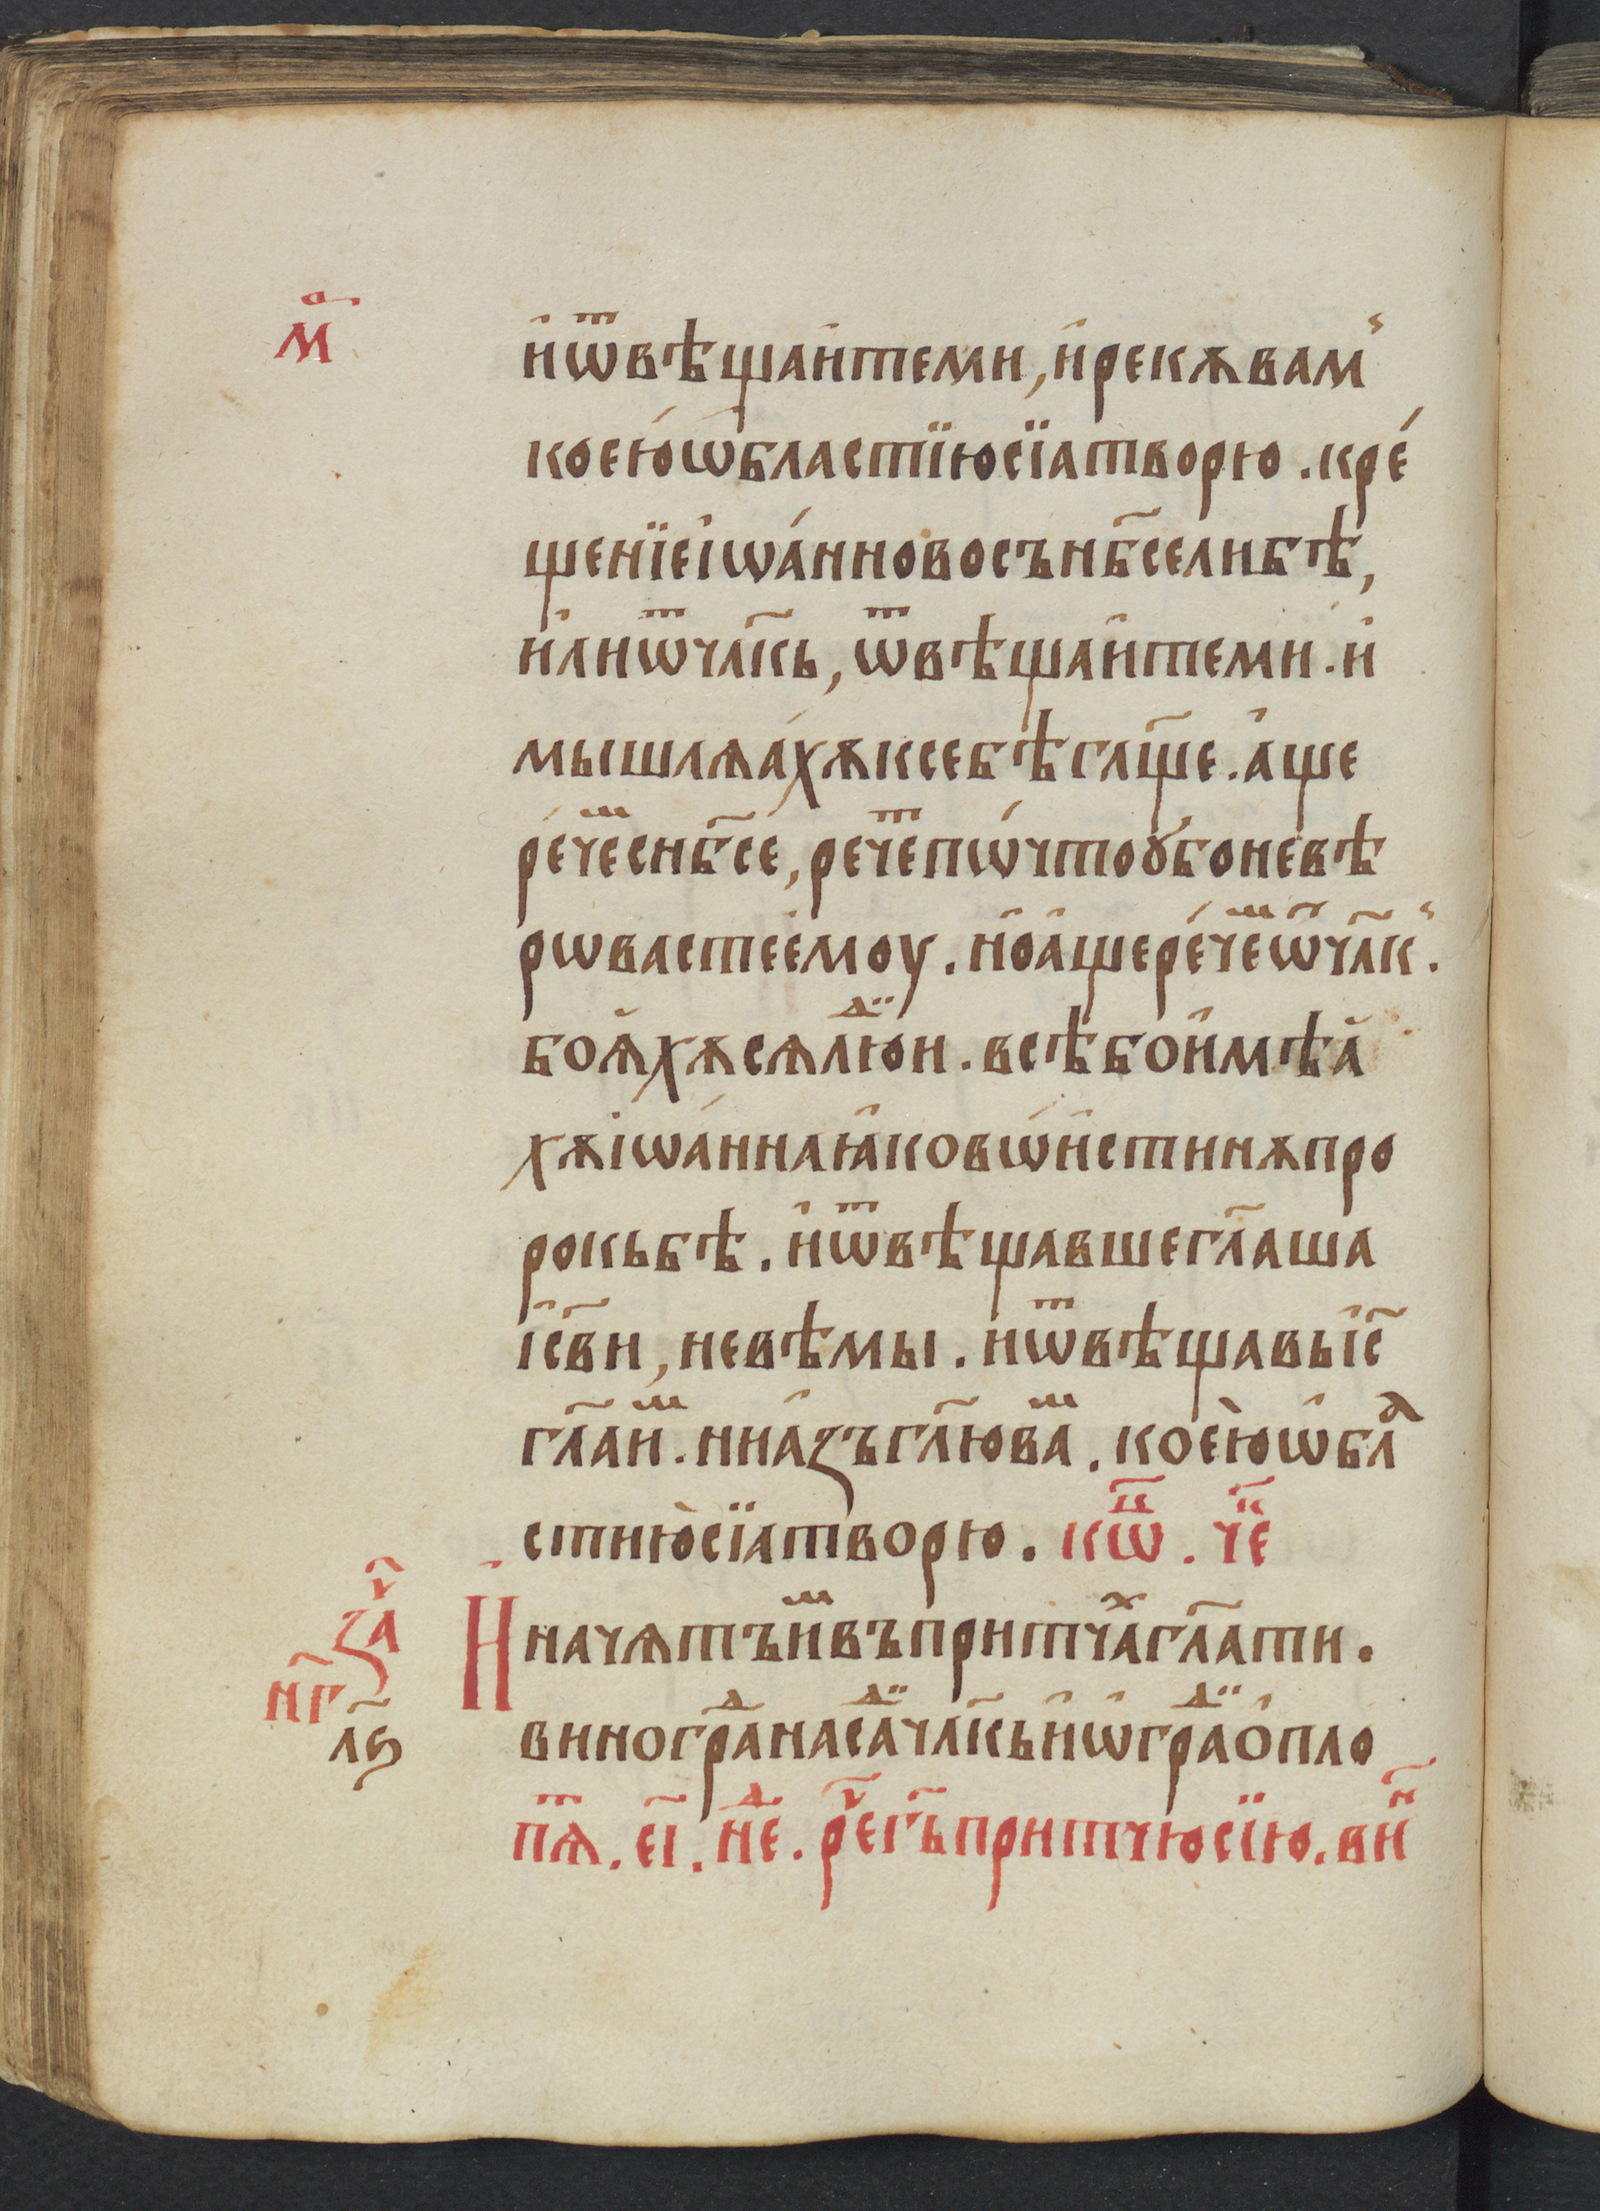 м҃а
и҆ ѿвѣщаи҆темн, и҆рекѫвам
коею̀ѡ҆бластїюсїатворю . кре́
щенїеі҆ѡа́нновосън҃бселибѣ,
и҆лиѿчл҃кь, ѿвѣщаи҆теми . и҆
мышлѧа́хѫксебѣгл҃ще . а҆ще
рече́мсн҃бсе, рече́тпѡ́чтоꙋбоневѣ
рѡвастеемоу . но̑а҆щере́чемѿчл҃к .
боѧ҆хѫсѧлюⷣи . всѣбои҆мѣа҆
хѫі҆ѡа́ннаꙗ҆ковѡ́и҆стинѫпро
рокьбѣ . и҆ѿвѣщавшегл҃аша
і҆с҃ви, невѣмы . и҆ѿвѣщавьі҆с҃
гл҃аиⷨ . ниа҆зъгл҃ювⷨа . коею̀ѡ҆блⷶ
стию̀сїатворю . кѡⷩ҇ . чⷦ҇е
зⷱ҇а
Иначѧтъи҆ⷨвъпритчаⷯгл҃ати .
нг҃
виногра́ⷣнаса́ⷣчл҃кьи҆ѡ҆гра́ⷣо҆пло
лѕ҃
пѧⷮ . е҃і . неⷣ . реⷱ҇г҃ьпритчюсїю . виⷩ҇